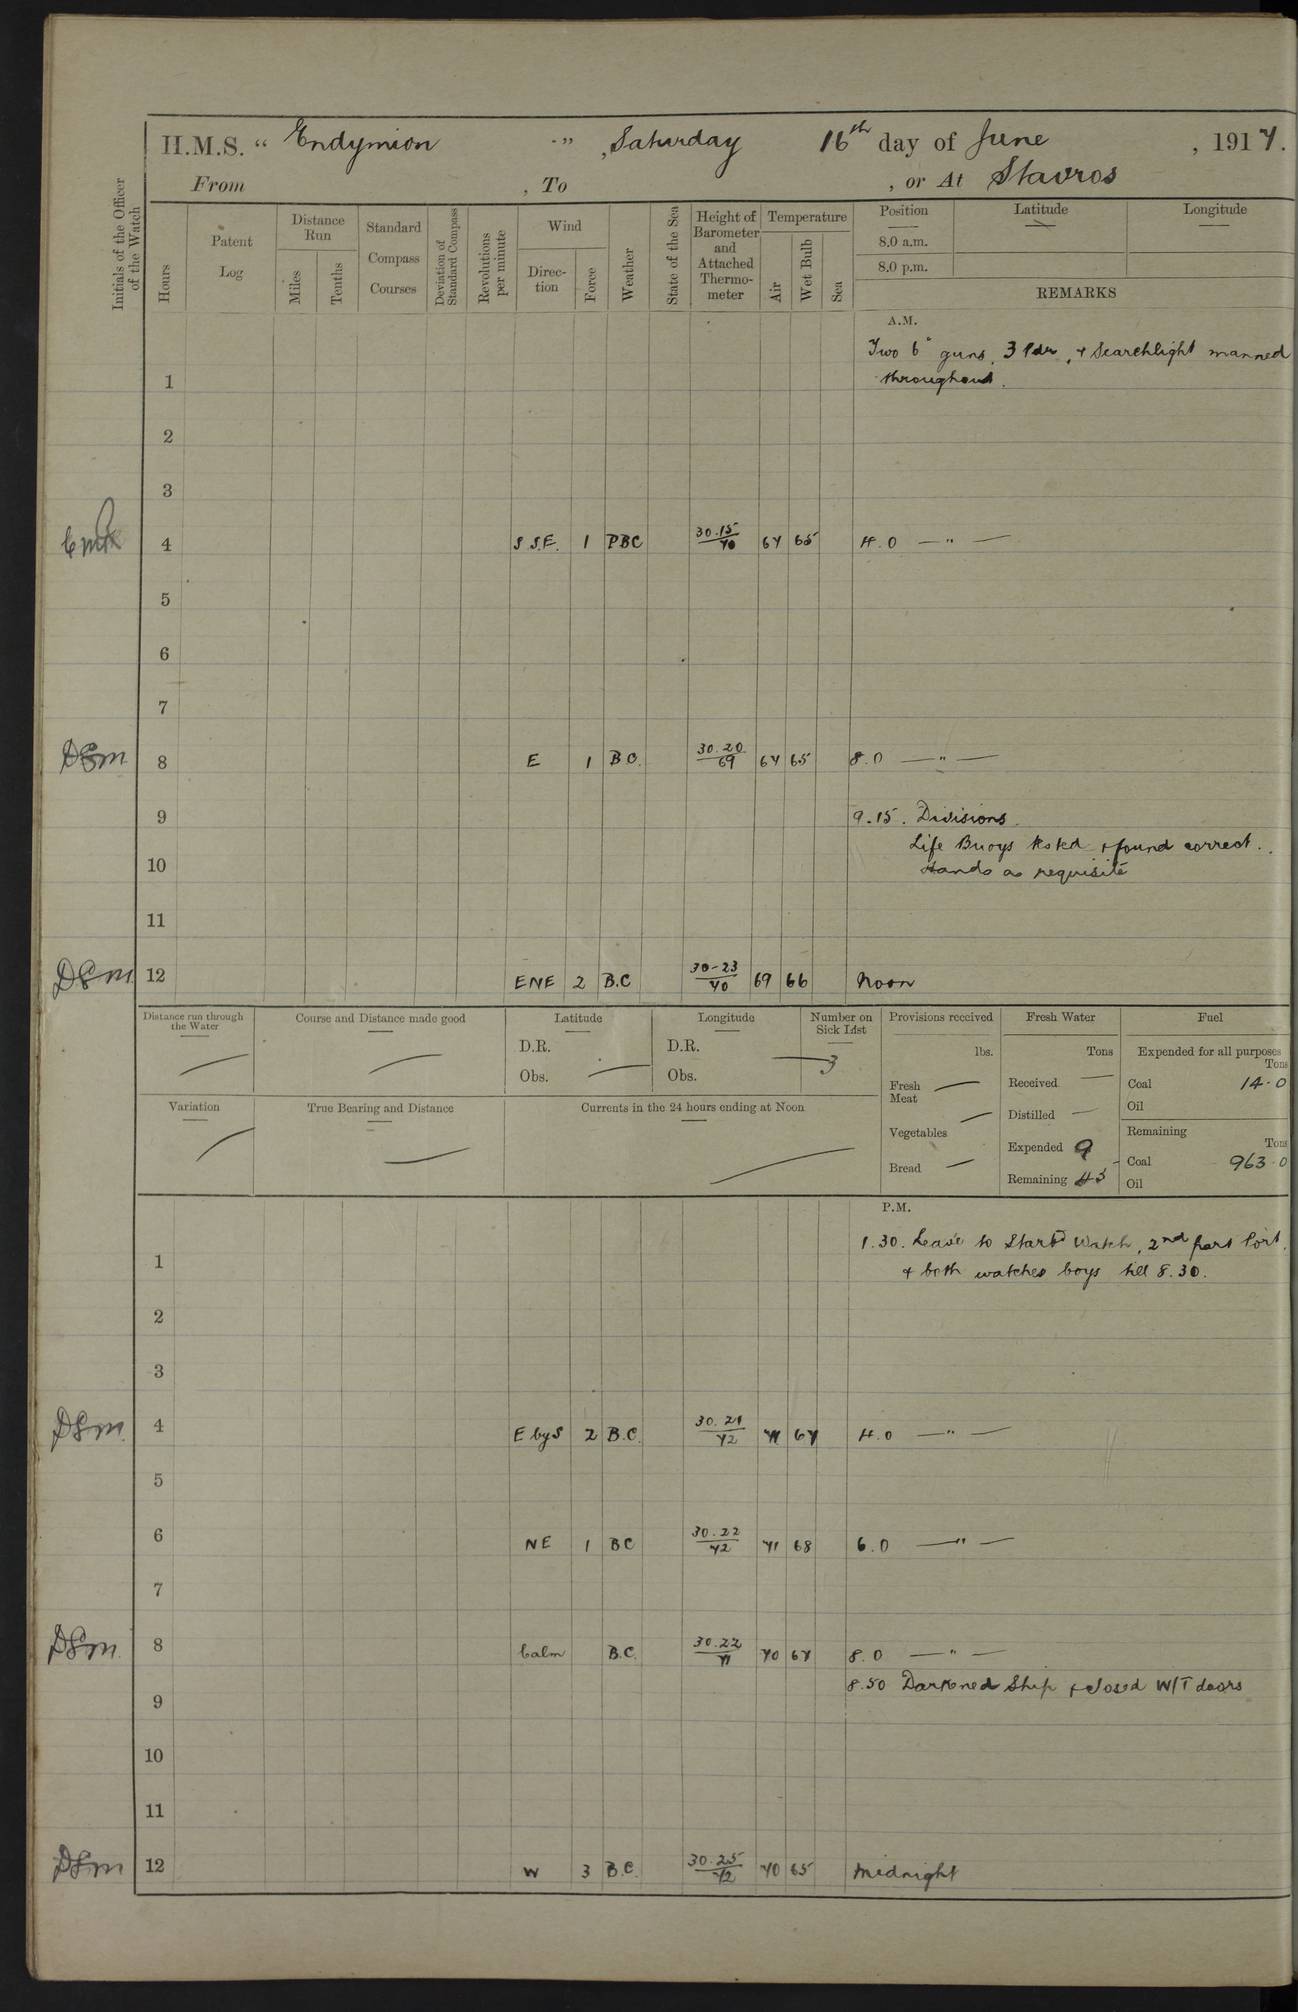 H.M.S. “ Endymion ” , Saturday 16th day of June , 1917.
From , To , or At Stavros
Initials of the Officer of the Watch
Hours
Patent Log
Distance Run
Miles
Tenths
Standard Compass Courses
Deviation of Standard Compass
Revolutions per minute
Wind
Direc-tion
Force
Weather
State of the Sea
Height of Barometer and Attached Thermo-meter
Temperature
Air
Wet Bulb
Sea
Position Latitude Longitude
8.0 a.m.
8.0 p.m.
REMARKS
A.M.
Two 6" guns, 3 Pdr, + Searchlight manned
1 throughout.
2
3
4 S.S.E. 1 PBC 30.15/70 67 65 4.0 — " —
5
6
7
DSM 8 E 1 B.C. 30.20/69 67 65 8.0 — " —
9 9.15. Divisions.
Life Buoys tested + found correct.
10 Hands as requisite
11
DSM 12 ENE 2 B.C 30-23/70 69 66 Noon
Distance run through the Water
Course and Distance made good
Latitude
D.R.
Obs. —
Longitude
D.R.
Obs. —
Number on Sick List
3
Provisions received
lbs.
Fresh Meat —
Vegetables —
Bread —
Fresh Water
Tons
Received —
Distilled —
Expended 9
Remaining 45
Fuel
Expended for all purposes
Tons
Coal 14.0
Oil
Remaining
Tons
Coal 963.0
Oil
Variation
True Bearing and Distance
Currents in the 24 hours ending at Noon
P.M.
1.30. Leave to Starbd Watch, 2nd part Port,
1 + both watches boys till 8.30.
2
3
DSM 4 E by S 2 B.C. 30.21/72 71 67 4.0 — " —
5
6 NE 1 BC 30.22/72 71 68 6.0 — " —
7
DSM 8 Calm B.C. 30.22/71 70 67 8.0 — " —
8.50 Darkened Ship + closed W/T doors
9
10
11
DSM 12 W 3 B.C. 30.25/72 70 65 Midnight